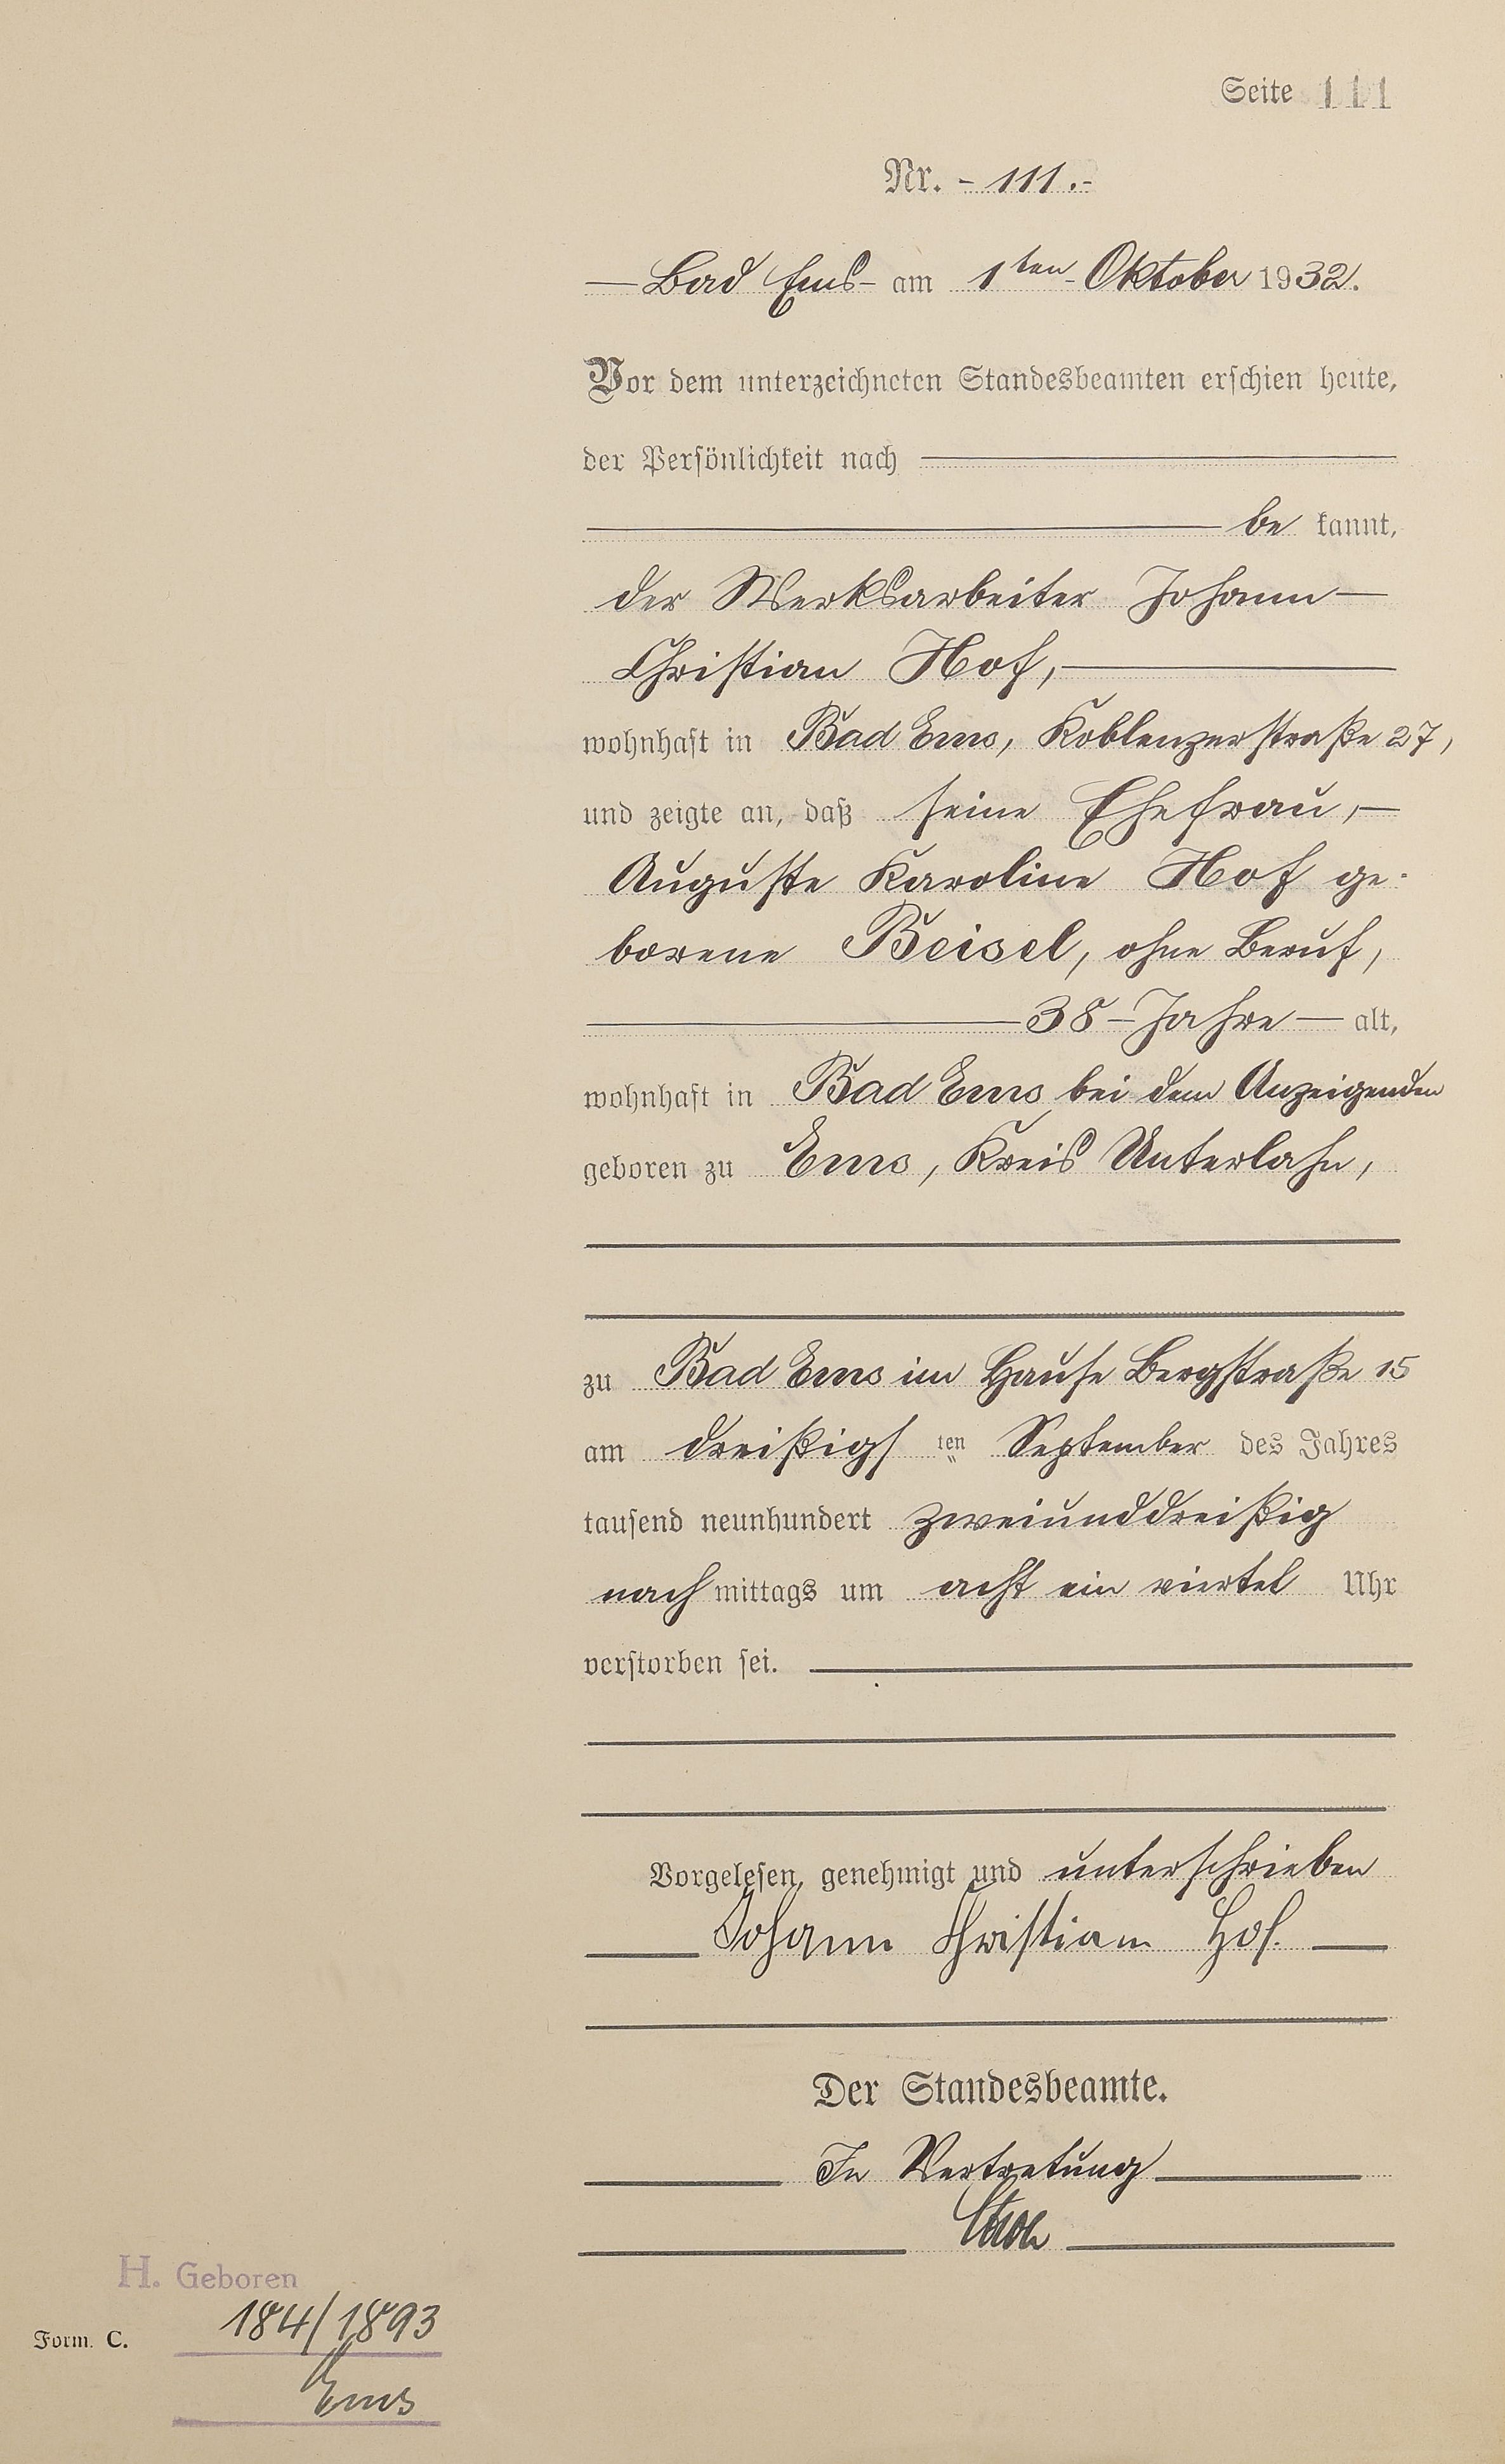 Seite 111
Nr. - 111.-
— Bad Ems - am 1ten - Oktober 1932.
Vor dem unterzeichneten Standesbeamten erschien heute,
der Persönlichkeit nach
be kannt,
der Werksarbeiter Johann —
Christian Hof,
wohnhaft in Bad Ems, Koblenzerstraße 27,
und zeigte an, daß seine Ehefrau, —
Auguste Karoline Hof ge-
borene Beisel, ohne Beruf,
38 - Jahre — alt,
wohnhaft in Bad Ems bei dem Anzeigenden
geboren zu Ems, Kreis Unterlahn,
zu Bad Ems im Hause Bergstraße 15
am dreißigs ten September des Jahres
tausend neunhundert zweiunddreißig
nach mittags um acht ein viertel Uhr
verstorben sei.
Vorgelesen, genehmigt und unterschrieben
Johann Christian Hof.
Der Standesbeamte.
In Vertretung
H. Geboren
184/1893
Form. C.
Ems